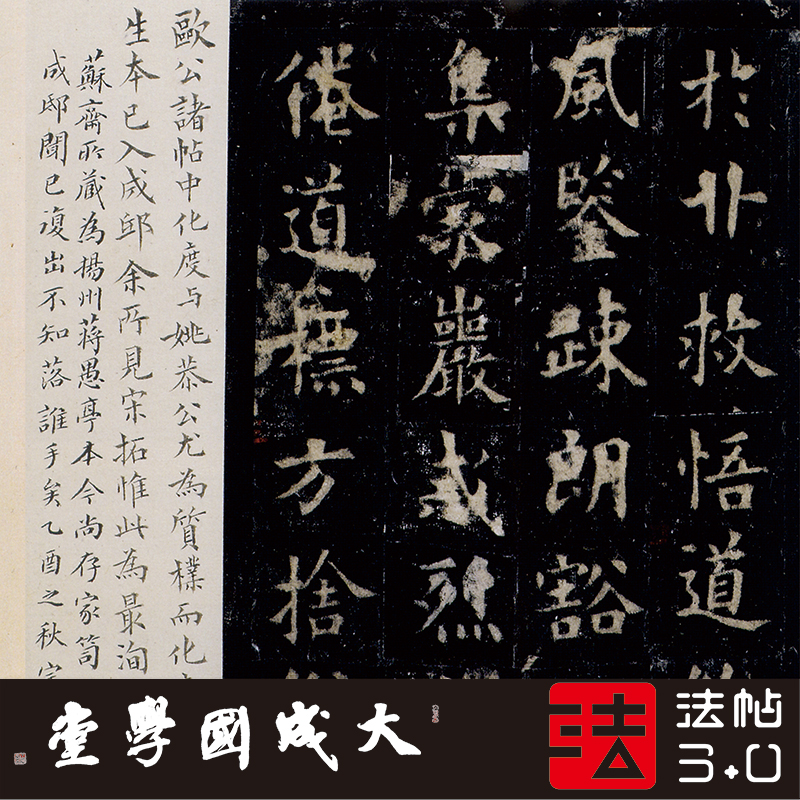 於卝救悟道
風鑒疎朗豁
集巖烈
倦道摽方捨
歐公諸帖中化度与姚恭公尤為質樸而化
生本已入成邸余所見宋拓惟此為最洵
蘇齋所藏為揚州蔣愚亭本今尚存家笥
成邸聞已復出不知落誰手矣乙酉之秋
大成國學堂
法
法帖
3.0